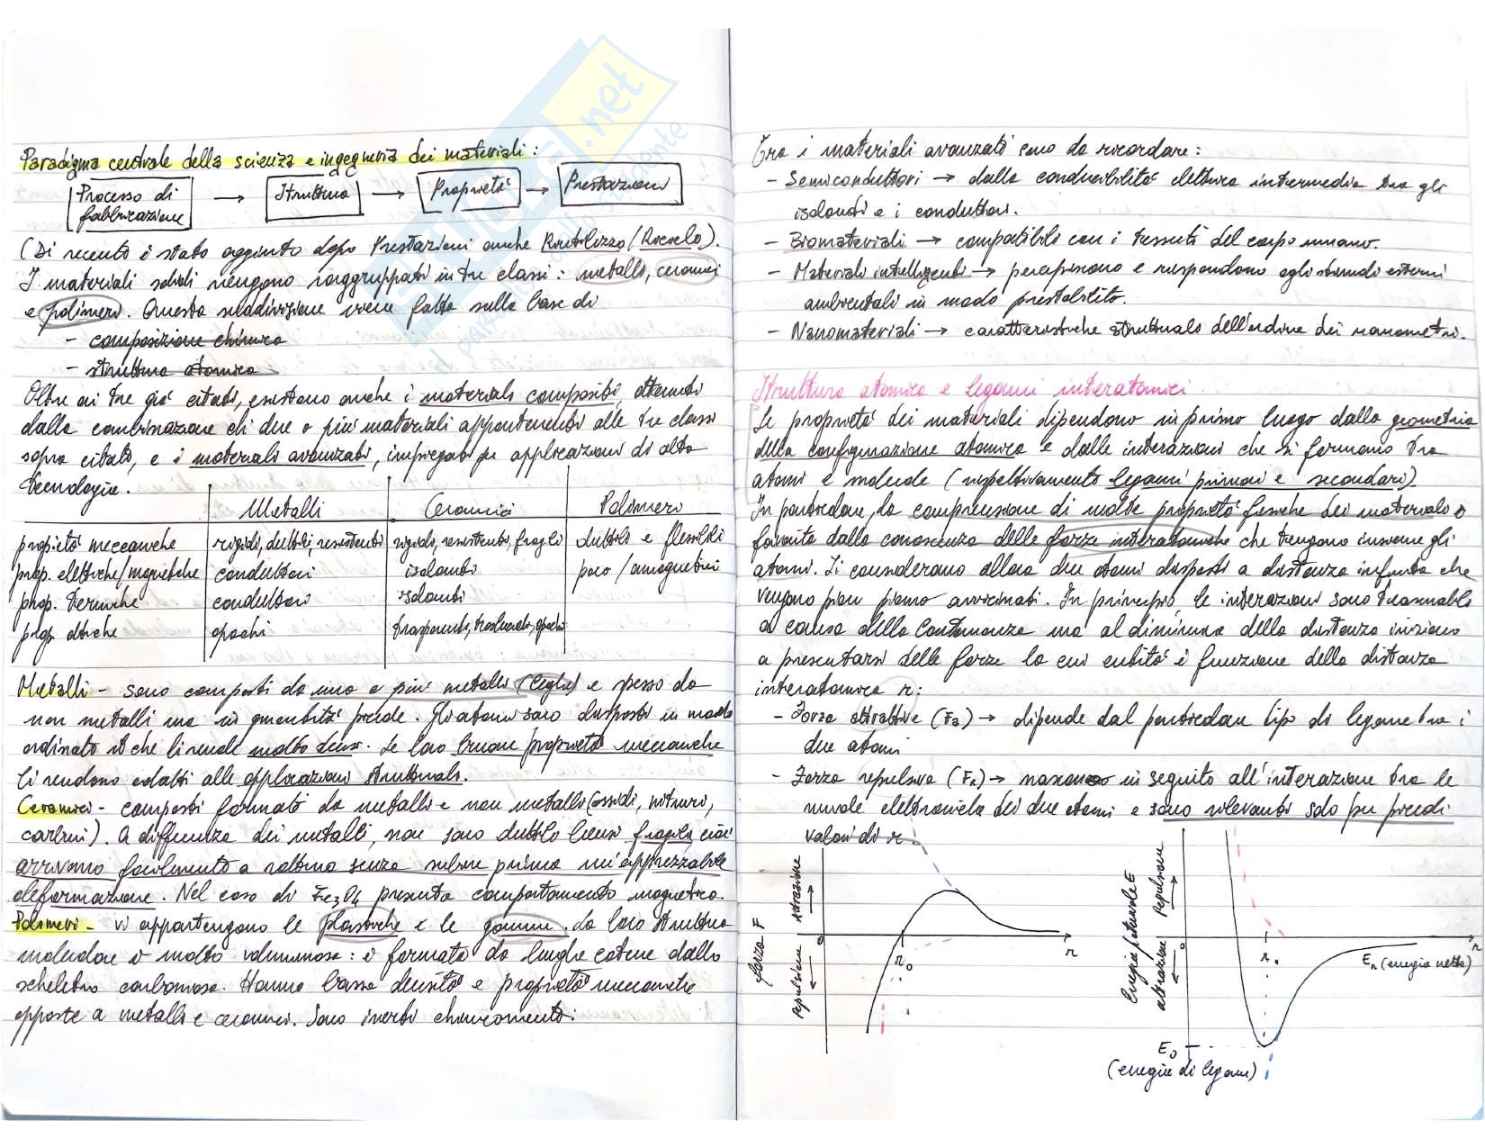 Paradigma centrale della scienza e ingegneria dei materiali:
Processo di fabbricazione → Struttura → Proprietà → Prestazioni
(Di recente è stato aggiunto dopo Prestazioni anche Riutilizzo/Riciclo).
I materiali solidi vengono raggruppati in tre classi: metalli, ceramici
e polimeri. Questa suddivisione viene fatta sulla base di
- composizione chimica
- struttura atomica
Oltre ai tre già citati, esistono anche i materiali compositi, ottenuti
dalla combinazione di due o più materiali appartenenti alle tre classi
sopra citate, e i materiali avanzati, impiegati per applicazioni di alta
tecnologia.
Metalli Ceramici Polimeri
propietà meccaniche rigidi, duttili, resistenti rigidi, resistenti, fragili duttili e flessibili
prop. elettriche/magnetiche conduttori isolanti poco/amagnetici
prop. termiche conduttori isolanti
prop. ottiche opachi trasparenti, traslucidi, opachi
Metalli - sono composti da uno o più metalli (leghe) e spesso da
non metalli ma in quantità piccole. Gli atomi sono disposti in modo
ordinato il che li rende molto densi. Le loro buone proprietà meccaniche
li rendono adatti alle applicazioni strutturali.
Ceramici - composti formati da metalli e non metalli (ossidi, nitruri,
carburi). A differenza dei metalli, non sono duttili bensì fragili, cioè
arrivano facilmente a rottura senza subire prima un'apprezzabile
deformazione. Nel caso di Fe3O4 presenta comportamento magnetico.
Polimeri - vi appartengono le plastiche e le gomme. La loro struttura
molecolare è molto voluminosa: è formata da lunghe catene dallo
scheletro carbonioso. Hanno bassa densità e proprietà meccaniche
opposte a metalli e ceramici. Sono inerti chimicamente.
Tra i materiali avanzati sono da ricordare:
- Semiconduttori → dalla conducibilità elettrica intermedia tra gli
isolanti e i conduttori.
- Biomateriali → compatibili con i tessuti del corpo umano.
- Materiali intelligenti → percepiscono e rispondono agli stimoli esterni
ambientali in modo prestabilito.
- Nanomateriali → caratteristiche strutturali dell'ordine dei nanometri.
Struttura atomica e legami interatomici
Le proprietà dei materiali dipendono in primo luogo dalla geometria
della configurazione atomica e dalle interazioni che si formano tra
atomi e molecole (rispettivamente legami primari e secondari).
In particolare, la comprensione di molte proprietà fisiche dei materiali è
favorita dalla conoscenza delle forze interatomiche che tengono insieme gli
atomi. Si considerano allora due atomi disposti a distanza infinita che
vengono pian piano avvicinati. In principio, le interazioni sono trascurabili
a causa della lontananza ma al diminuire della distanza iniziano
a presentarsi delle forze la cui entità è funzione della distanza
interatomica r:
- Forza attrattive (Fa) → dipende dal particolare tipo di legame tra i
due atomi
- Forza repulsiva (FR) → nascono in seguito all'interazione tra le
nuvole elettroniche dei due atomi e sono rilevanti solo per piccoli
valori di r.
Forza F
Repulsione attrazione
0
r0
r
Energia potenziale E
attrazione Repulsione
0
r0
r
En (energia netta)
E0
(energia di legame)